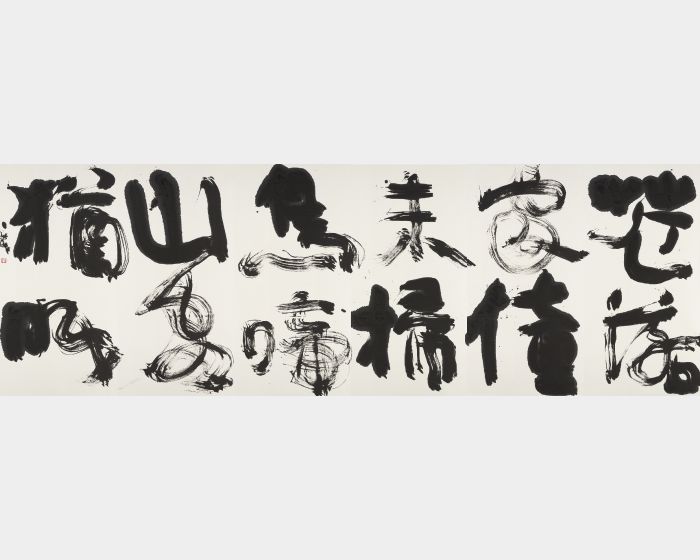 花落
家僮
未掃
鳥啼
山客
猶眠